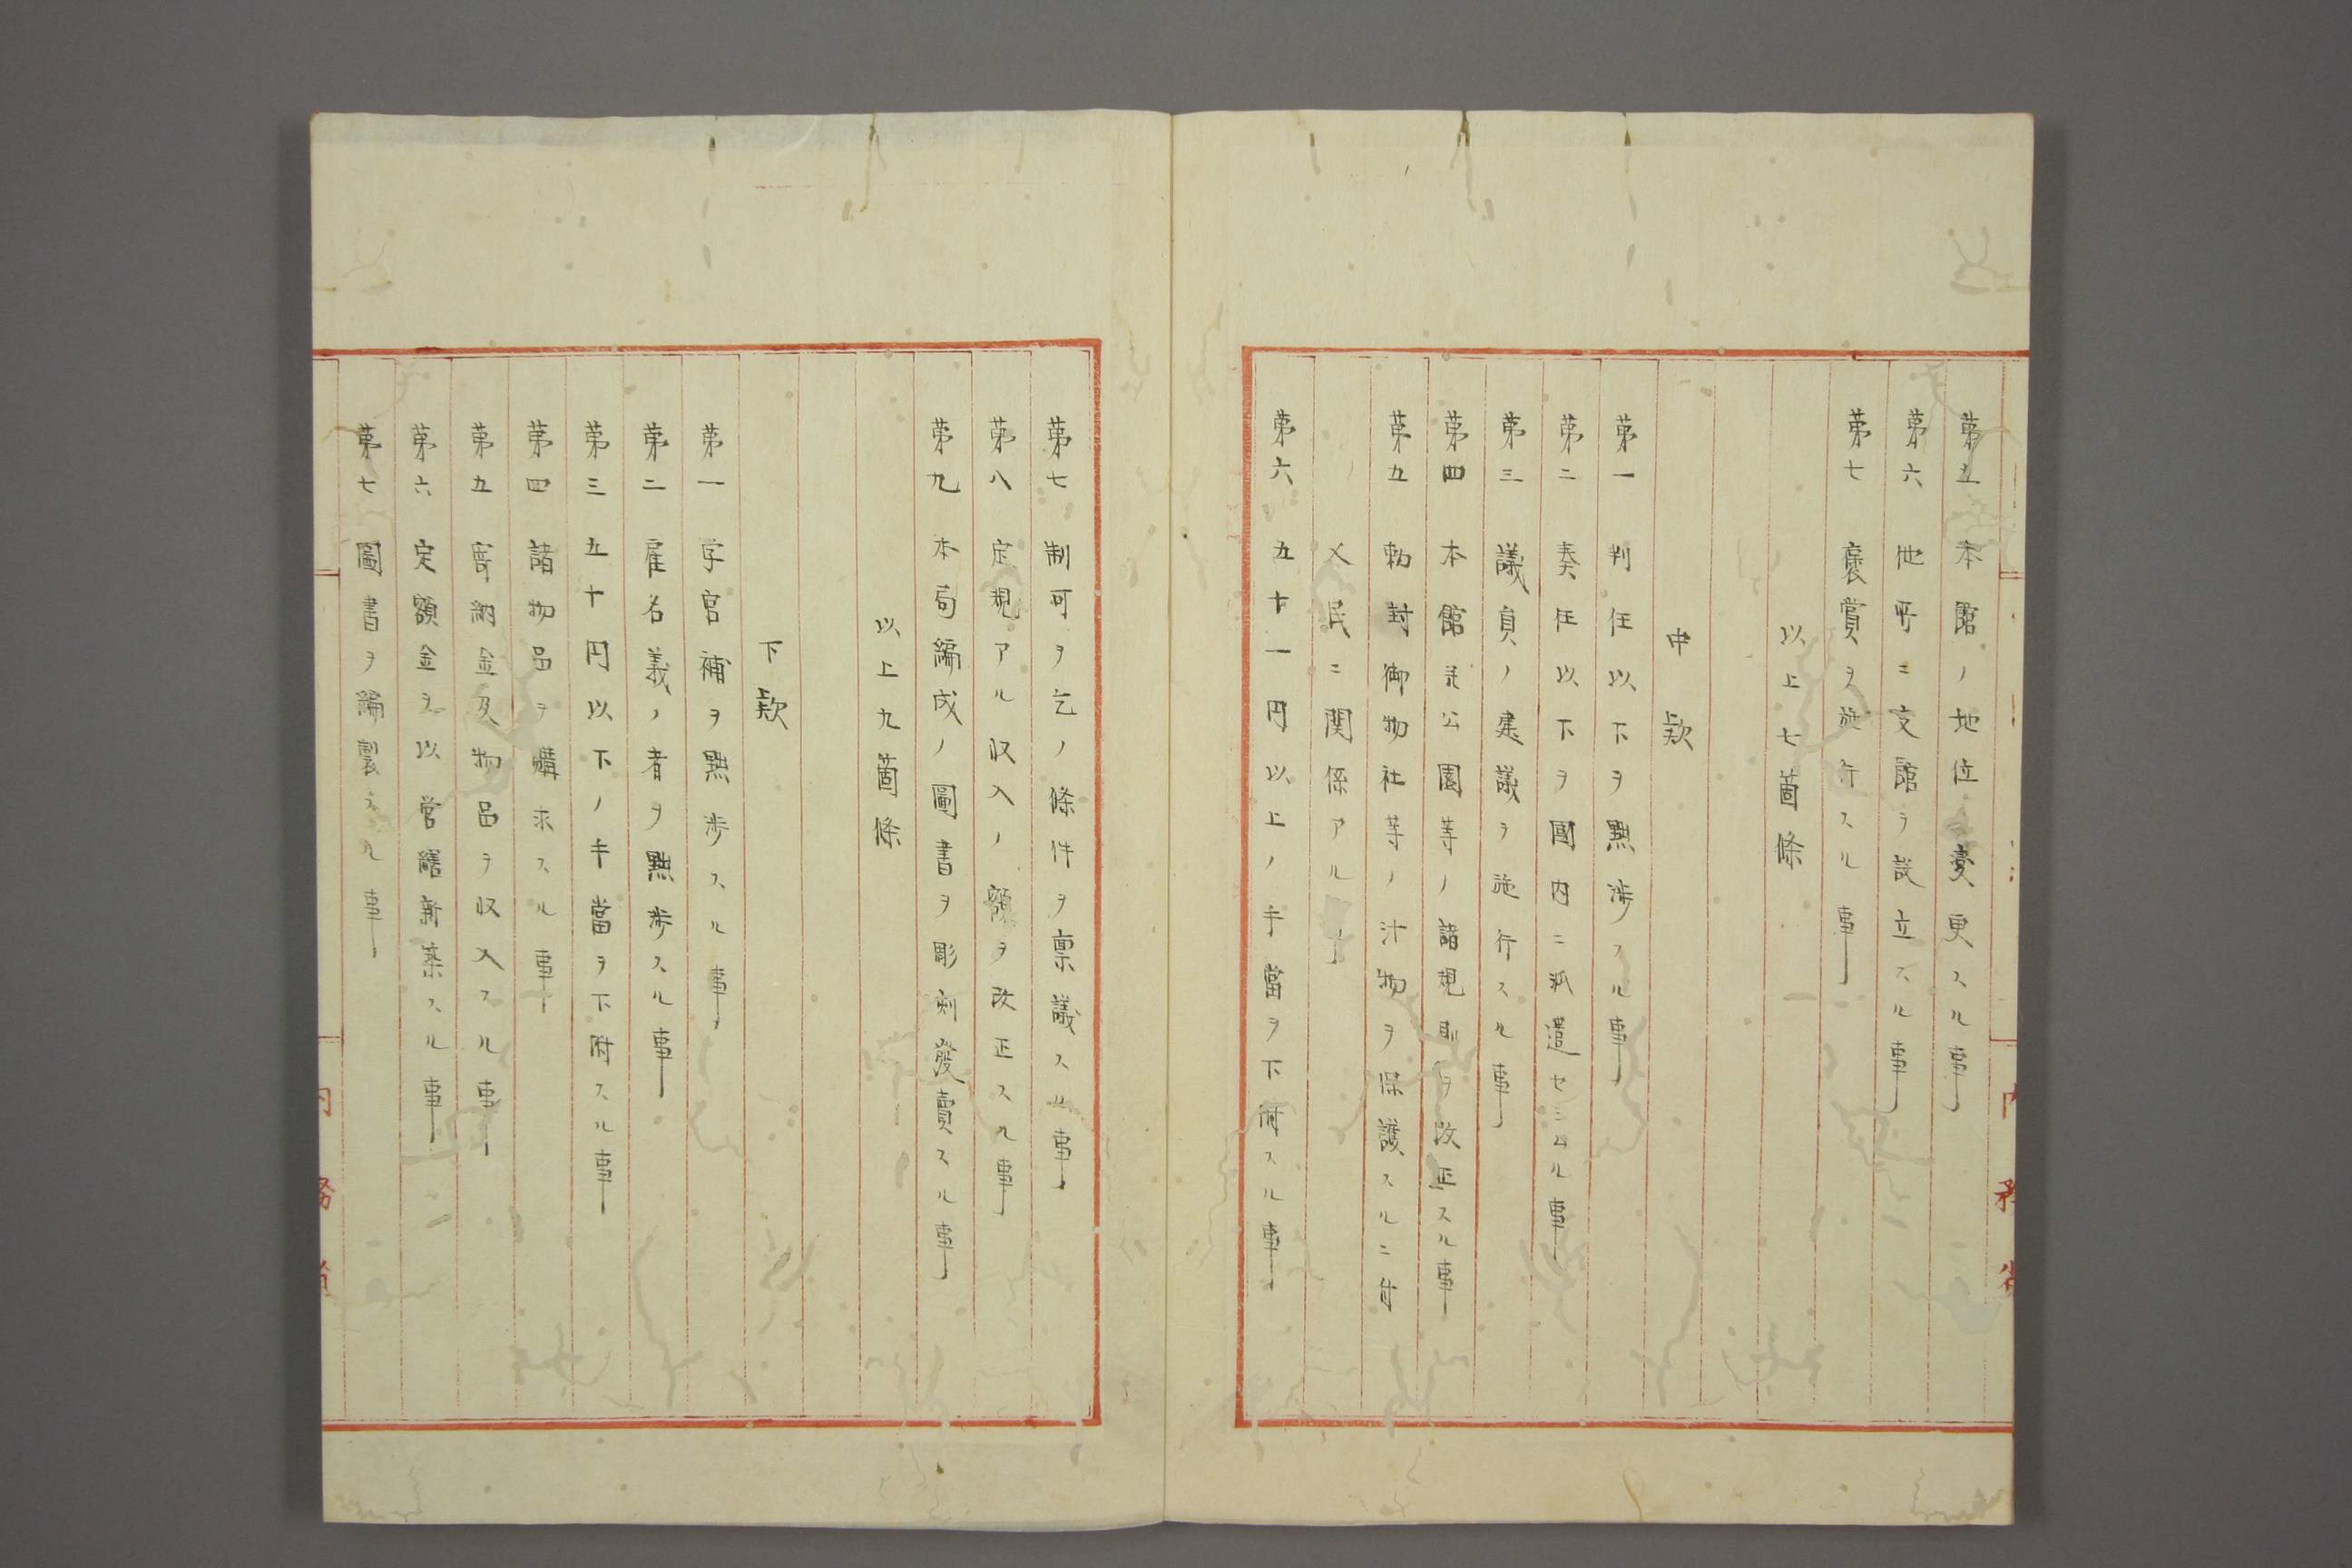 第五 本館ノ地位変更スル事
第六 他所ニ支館ヲ設立スル事
第七 褒賞ヲ施行スル事
以上七箇條
中款
第一 判任以下ヲ黜渉スル事
第二 奏任以下ヲ國内ニ派遣セシムル事
第三 議員ノ建議ヲ施行スル事
第四 本館並公園等ノ諸規則ヲ改正スル事
第五 勅封御物社寺ノ什物ヲ保護スルニ付
人民ニ関係アル事
第六 五十一円以上ノ手當ヲ下附スル事
内務省
第七 制可ヲ乞ノ條件ヲ禀議スル事
第八 定規アル収入ノ額ヲ改正スル事
第九 本局編成ノ圖書ヲ彫刻發賣スル事
以上九箇條
下款
第一 字官補ヲ黜渉スル事
第二 雇名義ノ者ヲ黜渉スル事
第三 五十円以下ノ手當ヲ下附スル事
第四 諸物品ヲ購求スル事
第五 寄納金及物品ヲ収入スル事
第六 定額金ヲ以営繕新築スル事
第七 圖書ヲ編製スル事
内務省